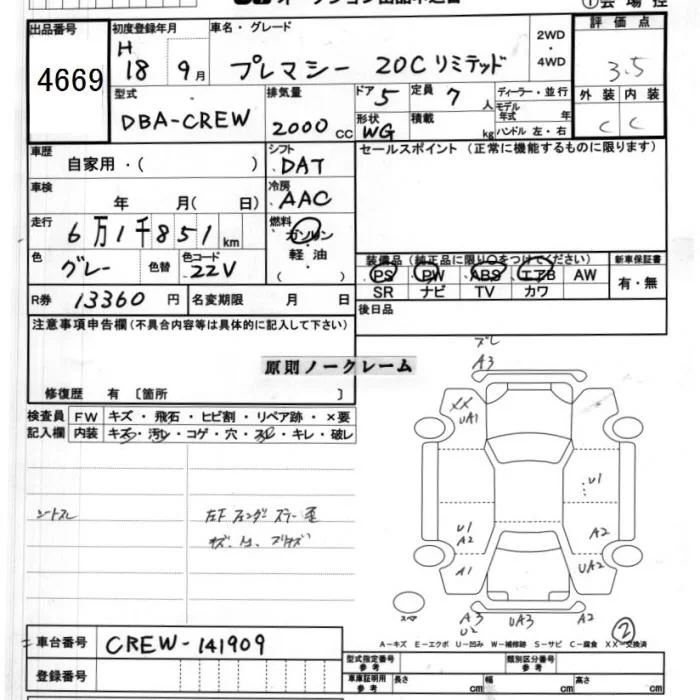 出品番号 4669
初度登録年月 H 18 9月
車名・グレード プレマシー 20Cリミテッド
2WD ・ 4WD
評価点 3.5
型式 DBA-CREW
排気量 2000 CC
ドア 5 定員 7 人
形状 WG 積載 kg
ディーラー・並行
モデル年式 年
ハンドル 左・右
外装 内装
C C
車歴 自家用・( )
シフト DAT
セールスポイント (正常に機能するものに限ります)
車検 年 月( 日)
冷房 AAC
走行 6万1千851 km
燃料 ガソリン
軽油
( )
色 グレー 色替 色コード 22V
装備品 (純正品に限り○をつけてください)
新車保証書
PS PW ABS エアB AW
SR ナビ TV カワ
有・無
R券 13360 円 名変期限 月 日
後日品
注意事項申告欄(不具合内容等は具体的に記入して下さい)
原則ノークレーム
修復歴 有 〔箇所 〕
ズレ
A3
検査員 FW キズ・飛石・ヒビ割・リペア跡・×要
記入欄 内装 キズ・汚レ・コゲ・穴・スレ・キレ・破レ
XX
UA1
U1
シートスレ
左F フェンダ ステー 歪
U1
A2
A2
A1
UA2
スペア
A3
U2
UA3
A2
②
A-キズ E-エクボ U-凹み W-補修跡 S-サビ C-腐食 XX-交換済
車台番号 CREW-141909
型式指定番号 参考 類別区分番号 参考
登録番号
車庫証明用 参考 長さ cm 幅 cm 高さ cm